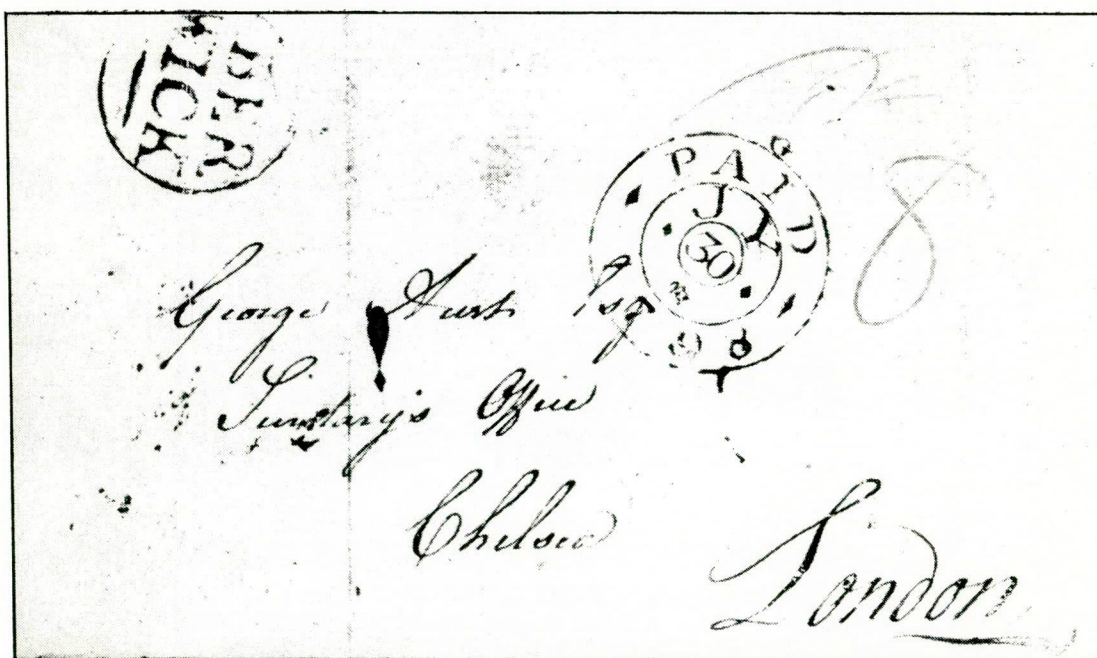 BER
WICK
PAID
JY
30
8
George Aust Esq
Secretary's Office
Chelsea
London